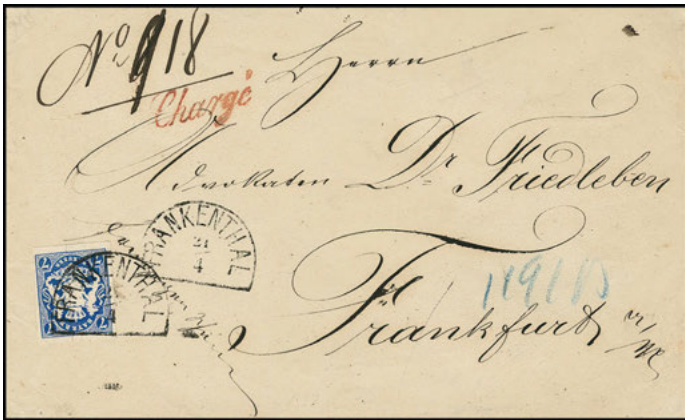 No 918
Herrn
Chargé
Advokaten Dr Friedleben
FRANKENTHAL
21
4
2 2
FRANKENTHAL
2
4
Frankfurt a/M